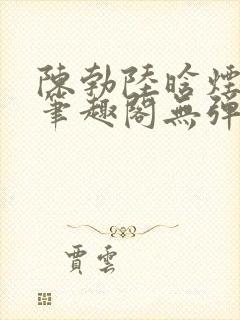 陳勃陸晗煙
筆趣閣無彈
賈雲